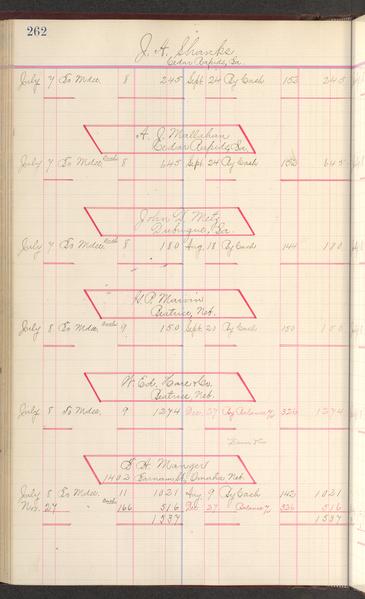 262
J. A. Shanks
Cedar Rapids, Ia.
July 7 To Mdse. 8 245 Sept 24 By Cash 152 245
A. J. Mallahan
Cedar Rapids, Ia.
July 7 To Mdse. 8 645 Sept 24 By Cash 152 645
John Metz
Dubuque, Ia.
July 7 To Mdse. 8 180 Aug. 18 By Cash 144 180
H. P. Marvin
Beatrice, Neb.
July 8 To Mdse. 9 150 Sept 21 By Cash 150 150
W. Ed. & Co.
Beatrice, Neb.
July 8 To Mdse. 9 1274 Dec. 27 By Balance 326 1274
D. H.
1402 Farnam St., Omaha, Neb.
July 8 To Mdse. 11 1021 Aug. 9 By Cash 142 1021
Nov. 27 " 166 516 Dec 27 " Balance 326 516
1537 1537